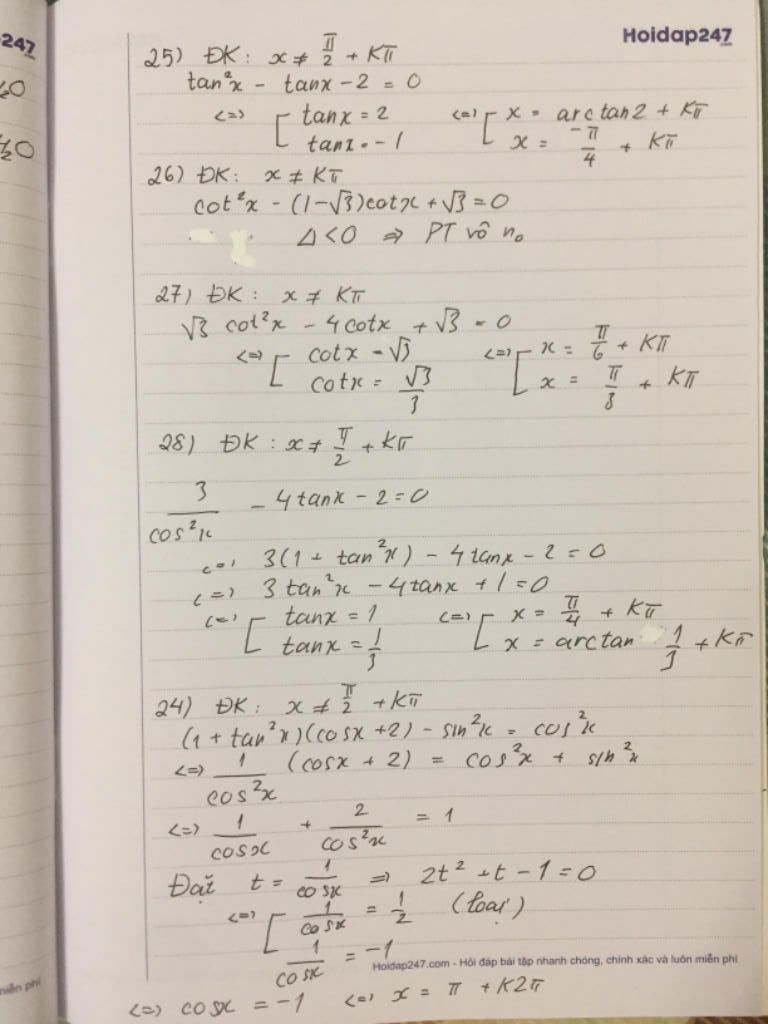 247
Hoidap247
.com
25) ĐK: x ≠ π/2 + Kπ
tan²x - tanx - 2 = 0
<=> [ tanx = 2 <=> [ x = arctan2 + Kπ
tanx = -1 x = -π/4 + Kπ
26) ĐK: x ≠ Kπ
cot²x - (1-√3)cotx + √3 = 0
Δ < 0 => PT vô n₀
27) ĐK: x ≠ Kπ
√3 cot²x - 4cotx + √3 = 0
<=> [ cotx = √3 <=> [ x = π/6 + Kπ
cotx = √3/3 x = π/3 + Kπ
28) ĐK: x ≠ π/2 + Kπ
3/cos²x - 4tanx - 2 = 0
<=> 3(1 + tan²x) - 4tanx - 2 = 0
<=> 3tan²x - 4tanx + 1 = 0
<=> [ tanx = 1 <=> [ x = π/4 + Kπ
tanx = 1/3 x = arctan 1/3 + Kπ
24) ĐK: x ≠ π/2 + Kπ
(1 + tan²x)(cosx + 2) - sin²x = cos²x
<=> 1/cos²x (cosx + 2) = cos²x + sin²x
<=> 1/cosx + 2/cos²x = 1
Đặt t = 1/cosx => 2t² + t - 1 = 0
<=> [ 1/cosx = 1/2 (loại)
1/cosx = -1
Hoidap247.com - Hỏi đáp bài tập nhanh chóng, chính xác và luôn miễn phí
<=> cosx = -1 <=> x = π + K2π
miễn phí